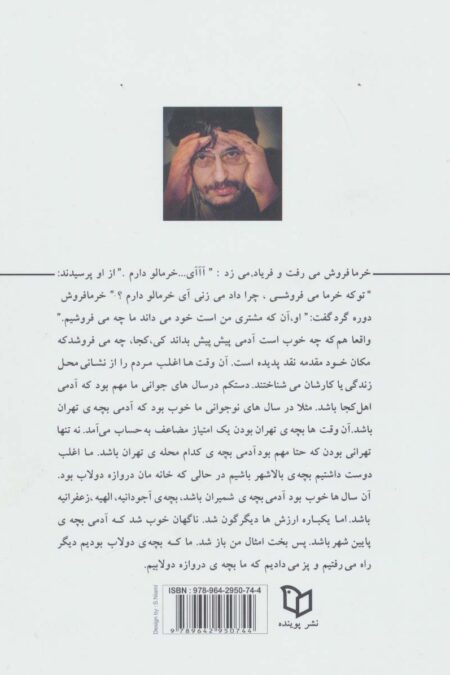 خرما فروش می رفت و فریاد می زد : " آآآی...خرمالو دارم ." از او پرسیدند:
"تو که خرما می فروشی ، چرا داد می زنی آی خرمالو دارم ؟" خرمافروش
دوره گرد گفت:" او،آن که مشتری من است خود می داند ما چه می فروشیم."
واقعا هم که چه خوب است آدمی پیش پیش بداند کی،کجا، چه می فروشد که
مکان خـود مقدمه نقد پدیده است. آن وقت ها اغلب مردم را از نشانی محل
زندگی یا کارشان می شناختند. دستکم در سال های جوانی ما مهم بود که آدمی
اهل کجا باشد. مثلا در سال های نوجوانی ما خوب بود که آدمی بچه ی تهران
باشد.آن وقت ها بچه ی تهران بودن یک امتیاز مضاعف به حساب می آمد. نه تنها
تهرانی بودن که حتا مهم بود آدمی بچه ی کدام محله ی تهران باشد. مـا اغلب
دوست داشتیم بچه ی بالاشهر باشیم در حالی که خانه مان دروازه دولاب بود.
آن سال ها خوب بود آدمی بچه ی شمیران باشد، بچه ی آجودانیه، الهیه ،زعفرانیه
باشد. اما یکباره ارزش ها دیگرگون شد. ناگهان خوب شد کـه آدمی بچه ی
پایین شهر باشد. پس بخت امثال من باز شد. ما کـه بچه ی دولاب بودیم دیگر
راه می رفتیم و پز می دادیم که ما بچه ی دروازه دولابیم.
ISBN : 978-964-2950-74-4
9 789642 950744
Design by : S.Niami
نشر پوینده